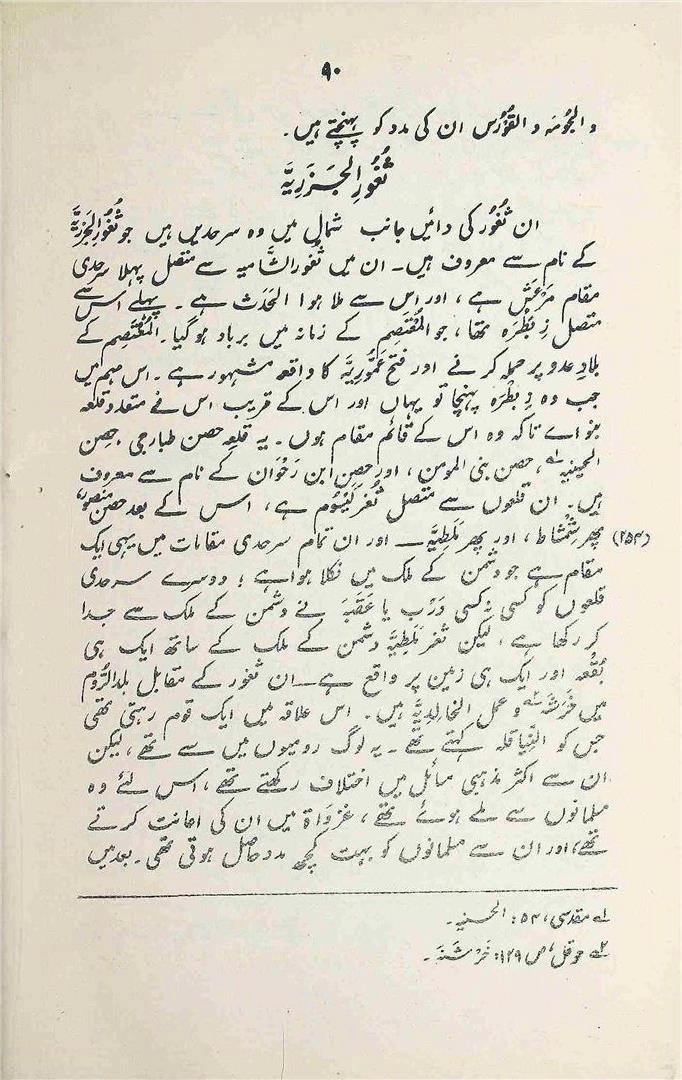 ۹۰
و الجُومَہ و القُوْرُس ان کی مدد کو پہنچتے ہیں۔
ثُغُورِ الجَزَرِیَّہ
ان ثُغُور کی دائیں جانب شمال میں وہ سرحدیں ہیں جو ثُغُورُ الجَزَرِیَّہ
کے نام سے معروف ہیں۔ ان میں ثُغُور الشَّامیہ سے متصل پہلا سرحدی
مقام مَرْعَش ہے، اور اس سے ملا ہوا الحَدَث ہے۔ پہلے اس سے
متصل زِبَطْرَہ تھا، جو المُعْتَصِم کے زمانہ میں برباد ہو گیا۔ المُعْتَصِم کے
بلادِ عدو پر حملہ کرنے اور فتح عَمُّورِیَّہ کا واقعہ مشہور ہے۔ اس مہم میں
جب وہ زِبَطْرَہ پہنچا تو یہاں اور اس کے قریب اس نے متعدد قلعہ
بنوائے تاکہ وہ اس کے قائم مقام ہوں۔ یہ قلعہ حصن طبارجی، حِصن
الحسینیہ ؎۱، حصن بنی المومن، اور حصن ابن رَحْوَان کے نام سے معروف
ہیں۔ ان قلعوں سے متصل ثُغر کَیْسُوم ہے، اس کے بعد حصن منصور،
(۲۵۴) پھر شِمْشَاط، اور پھر مَلَطِیَّہ ــ اور ان تمام سرحدی مقامات میں یہی ایک
مقام ہے جو دشمن کے ملک میں نکلا ہوا ہے؛ دوسرے سرحدی
قلعوں کو کسی نہ کسی دَرْب یا عَقَبَہ نے دشمن کے ملک سے جدا
کر رکھا ہے، لیکن ثغر مَلَطِیَّہ دشمن کے ملک کے ساتھ ایک ہی
بُقْعہ اور ایک ہی زمین پر واقع ہے ــ ان ثغور کے مقابل بلد الرُّوم
میں خَرْشَنَہ ؎۲ و عمل الخالدِیَّہ ہیں۔ اس علاقہ میں ایک قوم رہتی تھی
جس کو البَیَاقلہ کہتے تھے۔ یہ لوگ رومیوں میں سے تھے، لیکن
ان سے اکثر مذہبی مسائل میں اختلاف رکھتے تھے، اس لئے وہ
مسلمانوں سے ملے ہوئے تھے، غزوات میں ان کی اعانت کرتے
تھے، اور ان سے مسلمانوں کو بہت کچھ مدد حاصل ہوتی تھی۔ بعد میں
؎۱ مقدسی، ۵۴: الحسنیہ۔
؎۲ حوقل، ص ۱۲۹: خَرْشَنَہ۔